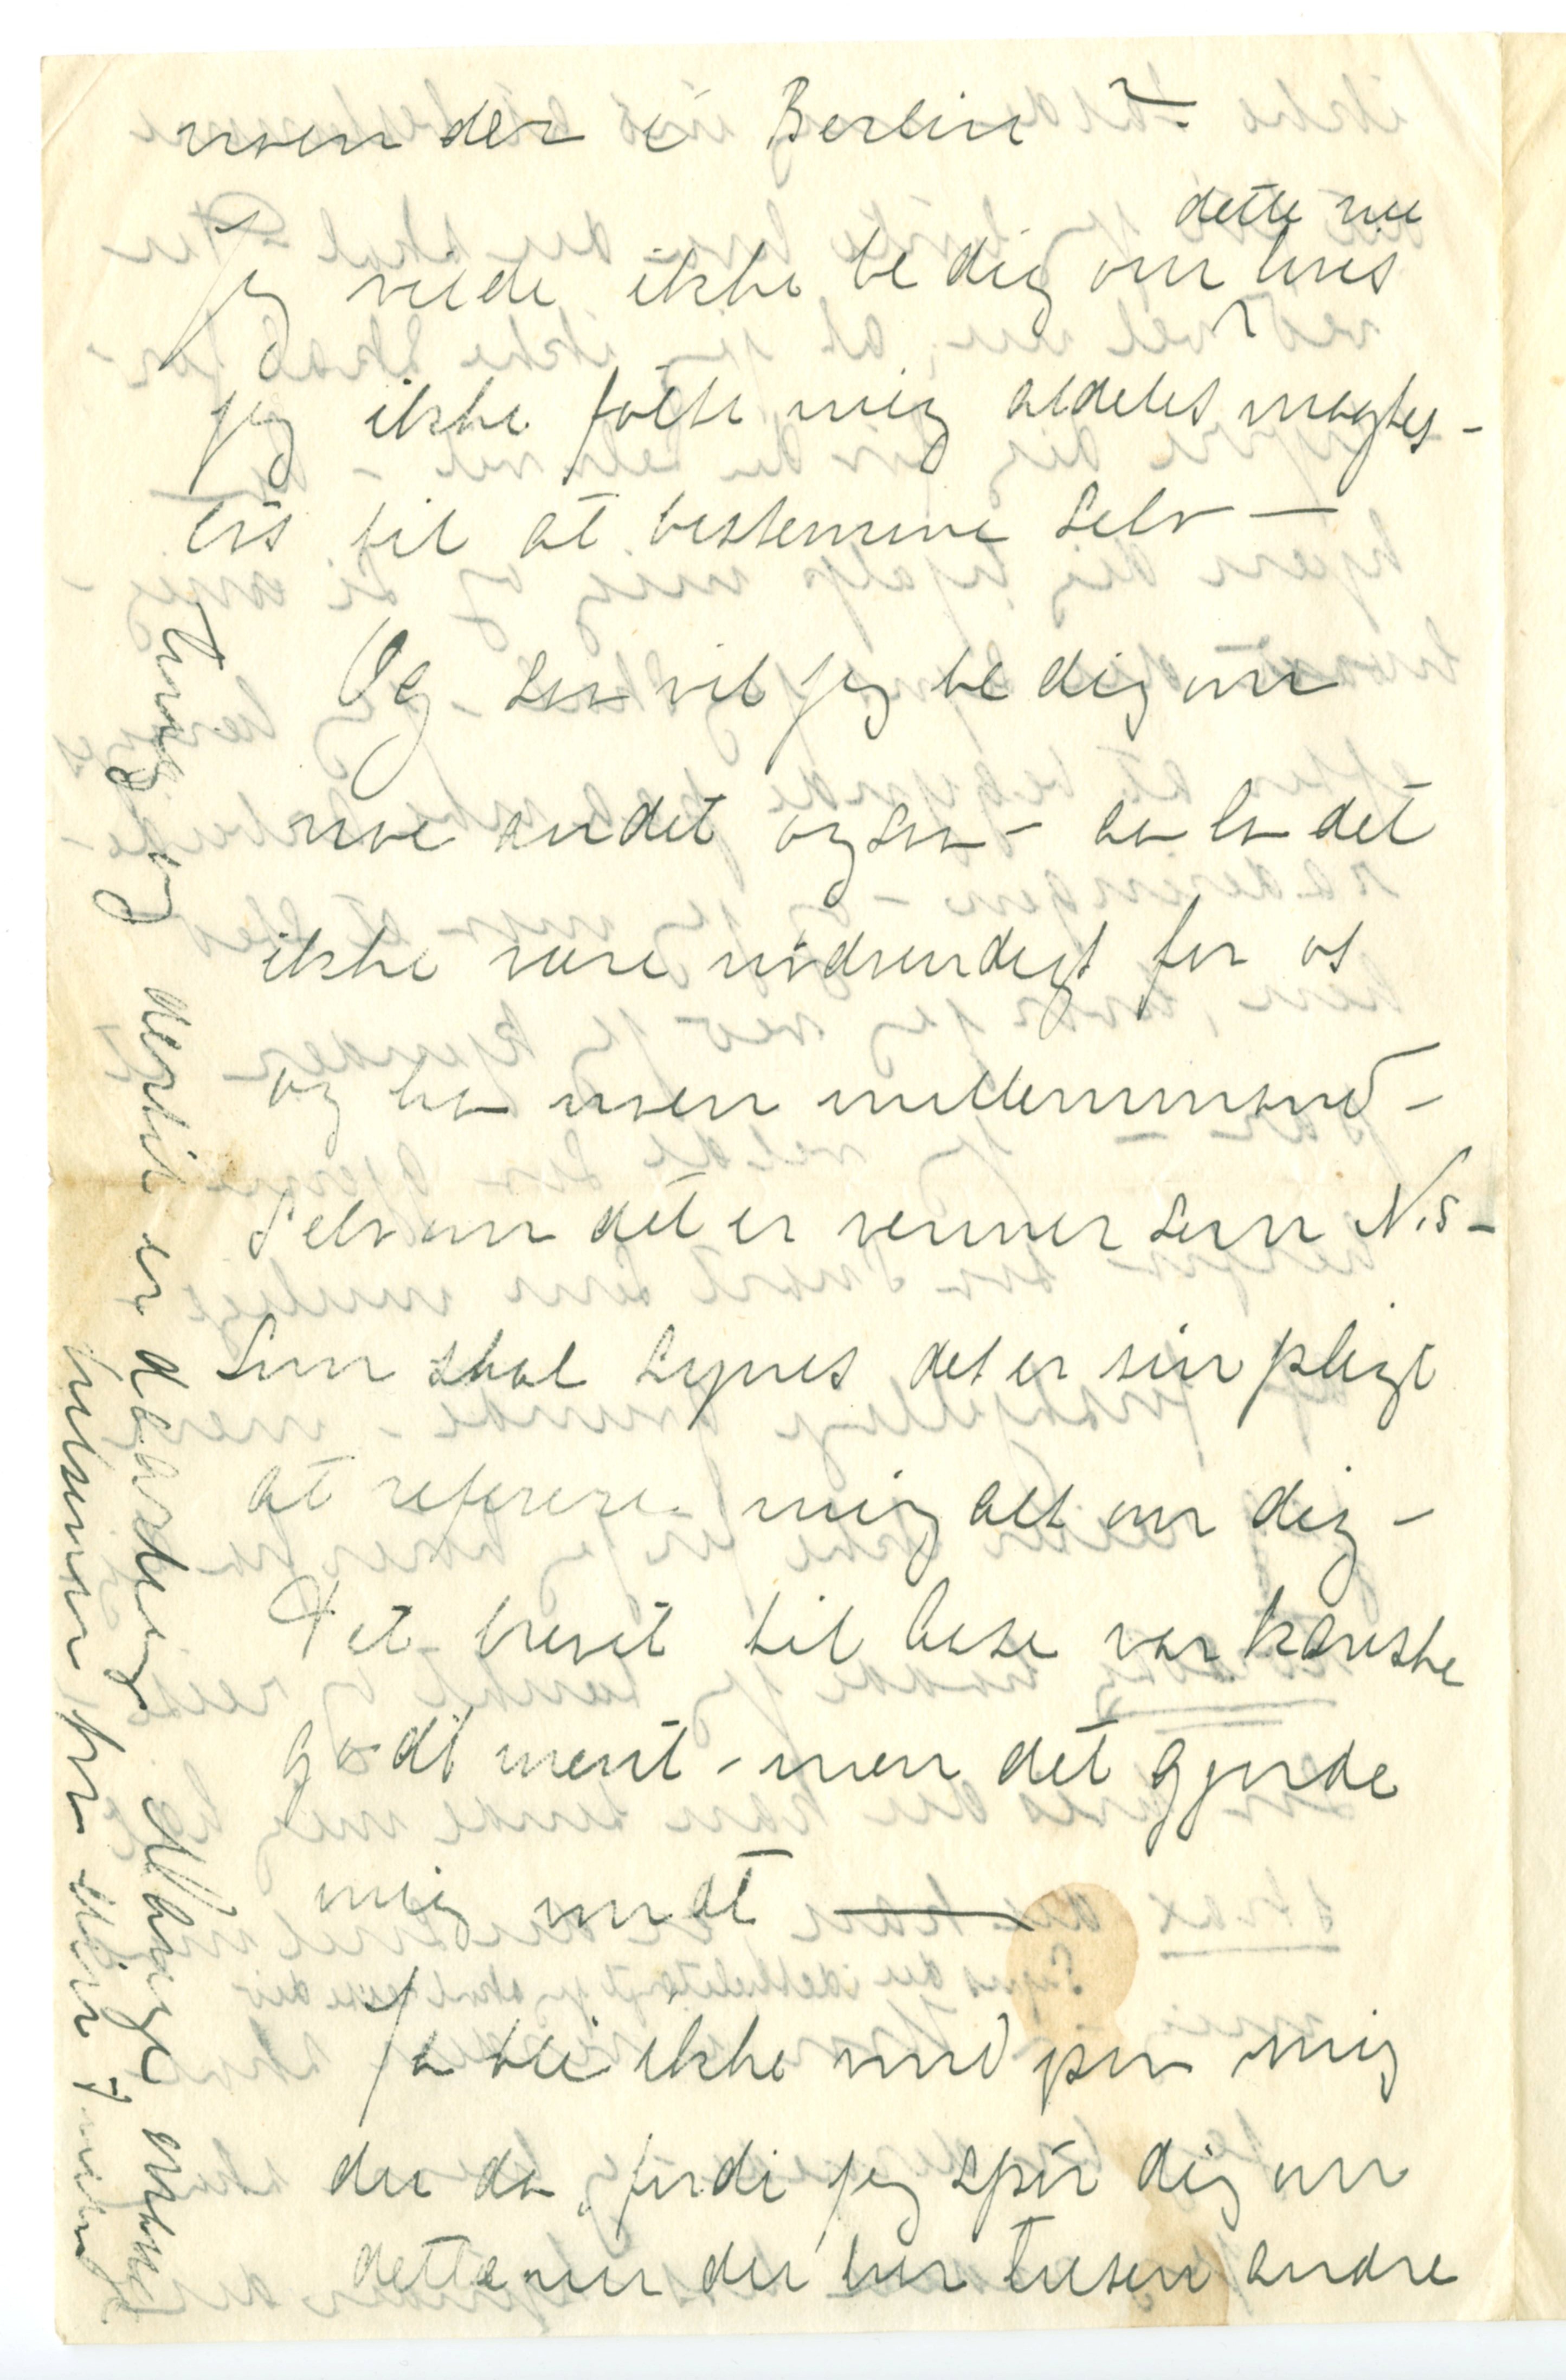 noen der i Berlin?—
dette nu
Jeg vilde ikke be dig om hvis
jeg ikke følte mig aldeles magtes-
løs til at bestemme selv —
Og saa vil jeg be dig om
noe andet ogsaa – aa la det
ikke være nødvendigt for os
og ha noen mellemmand –
Selv om det er venner som N.s –
Som skal synes det er sin pligt
at referere mig alt om dig –
Det brevet til Aase var kanske
godt ment – men det gjorde
mig ondt —
Ja bli ikke vred paa mig
du da fordi jeg spør dig om
dette nu du har tusen andre